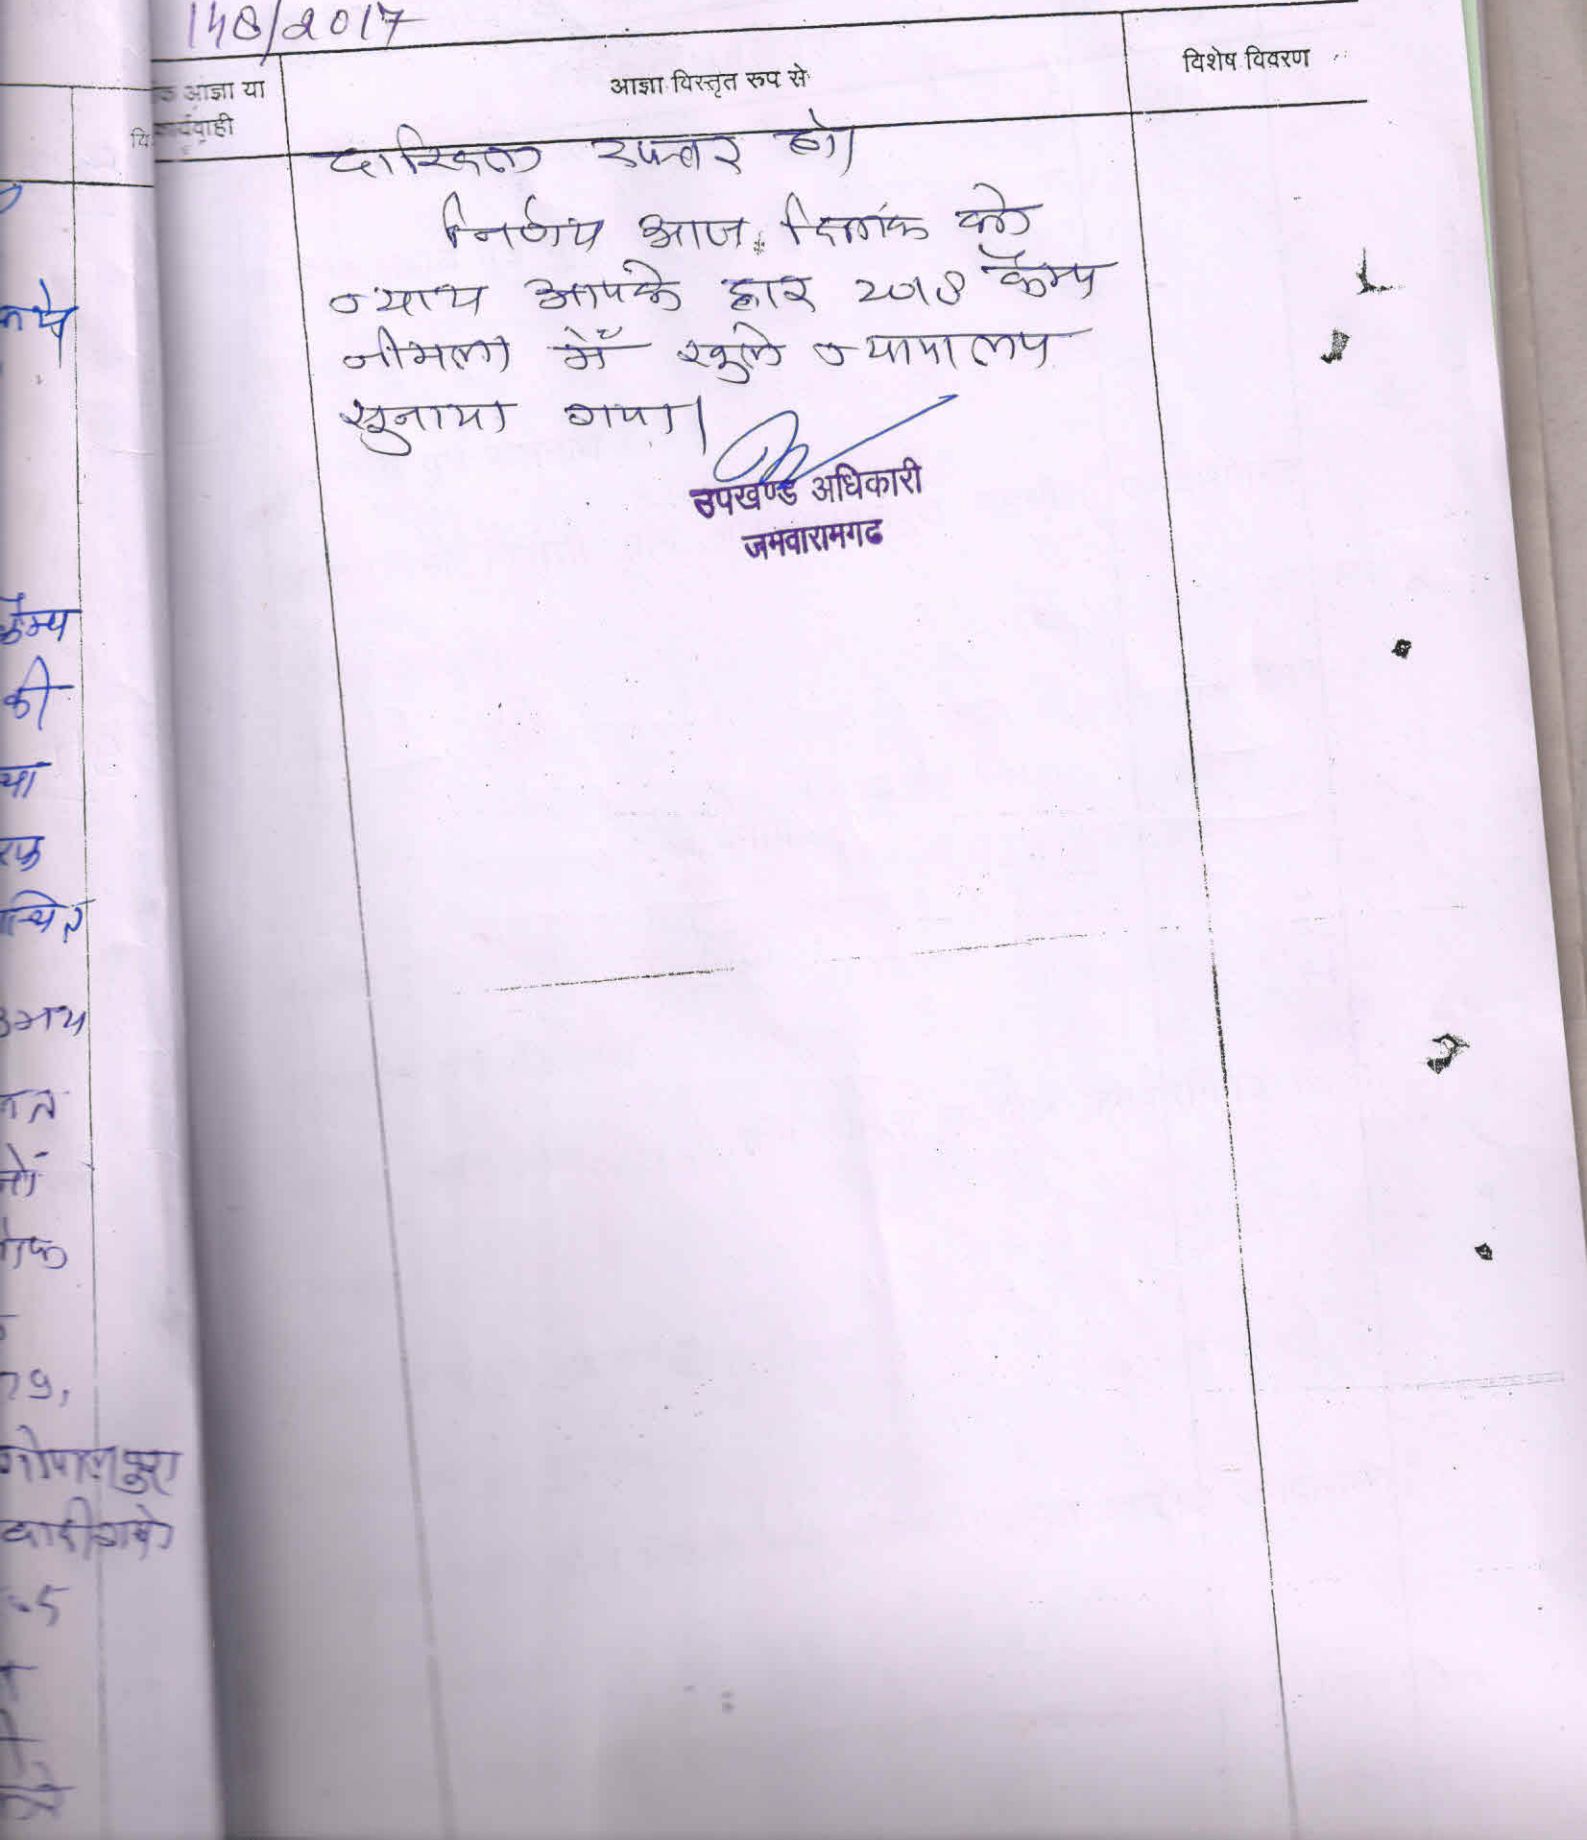 148/2017
आज्ञा या
कार्यवाही
आज्ञा विस्तृत रूप से
विशेष विवरण
दाखिल दफ्तर हो।
निर्णय आज दिनांक को
न्याय आपके द्वार 2018 कैम्प
नीमला में खुले न्यायालय
सुनाया गया।
उपखण्ड अधिकारी
जमवारामगढ
कैम्प
की
या
उभय
79,
गोपालपुरा